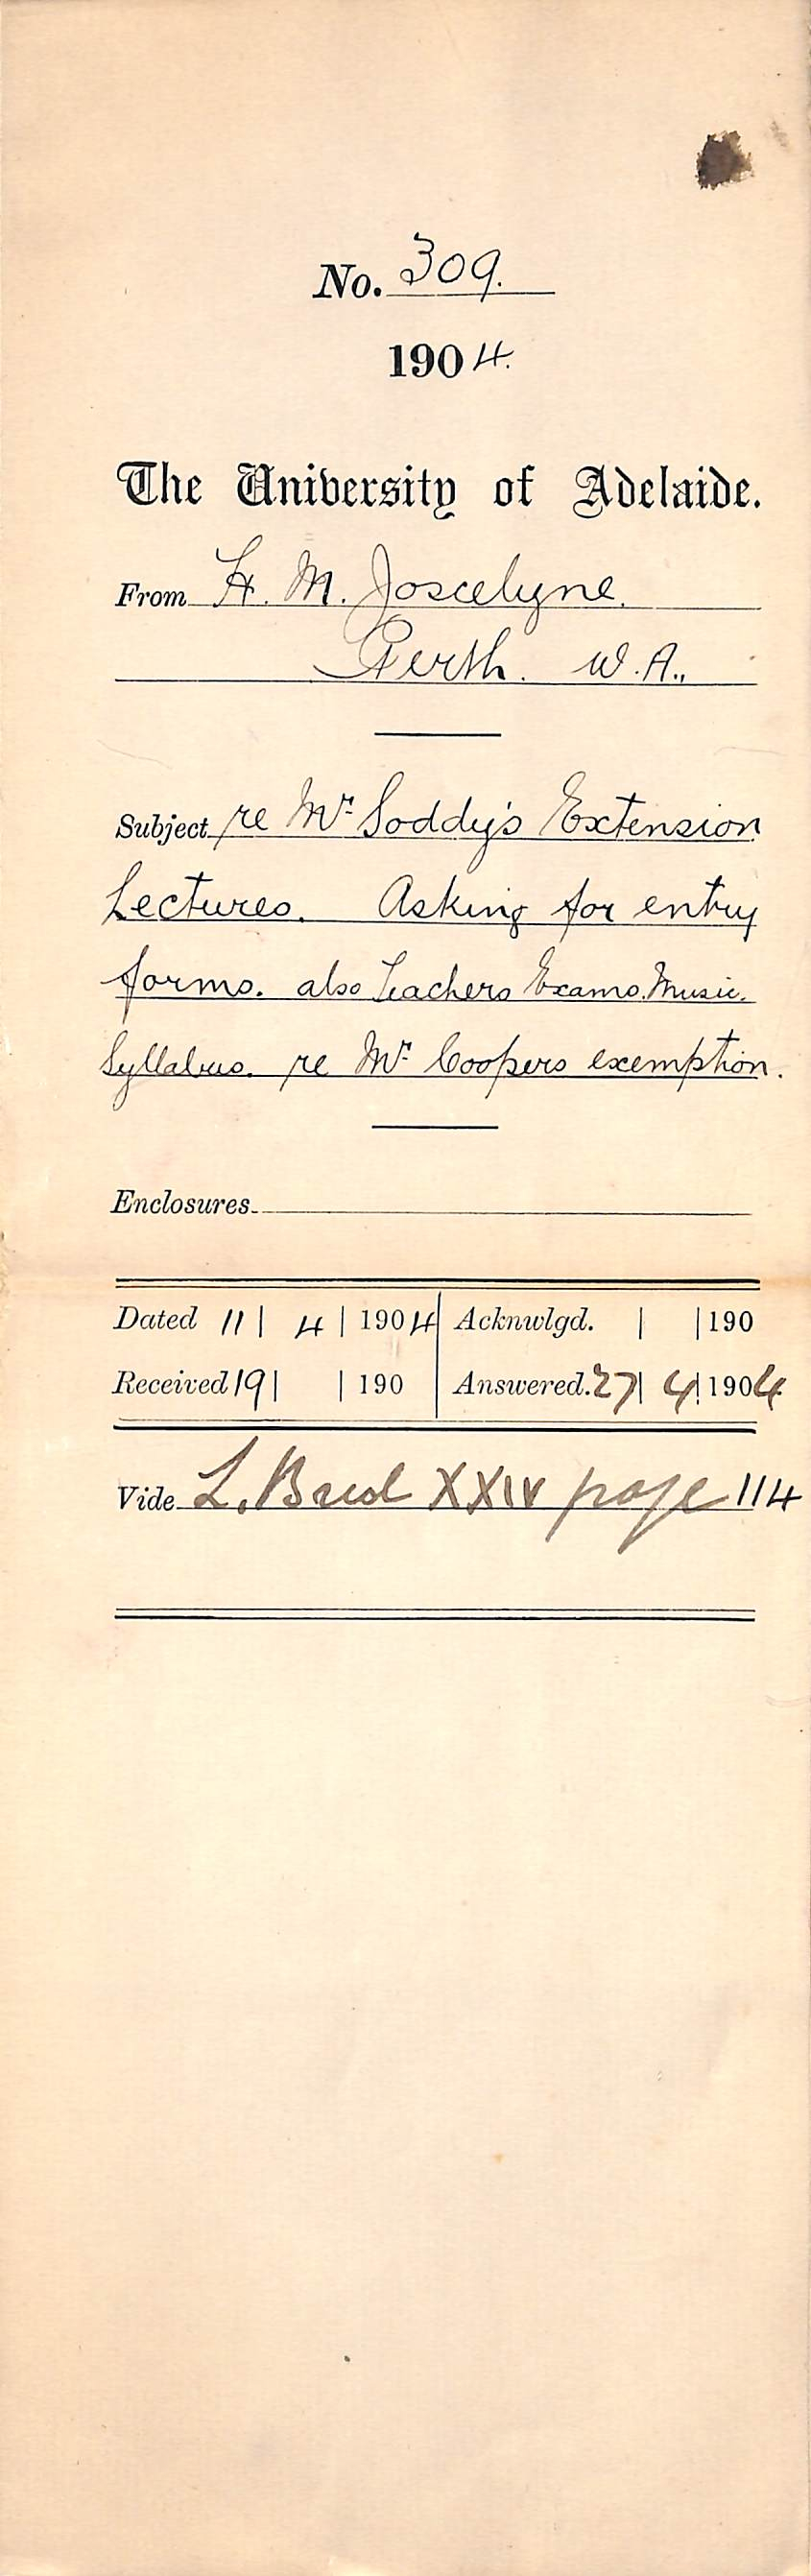 No. 309.
1904.
The University of Adelaide.
From H. M. Joscelyne.
Perth. W.A.,
Subject re Mr Soddy's Extension
Lectures. Asking for entry
forms. also Teachers Exams. Music.
Syllabus. re Mr Coopers exemption.
Enclosures.
Dated 11 | 4 | 1904 Acknwlgd. | | 190
Received 19 | | 190 Answered. 27 | 4 | 1904
Vide L. XXIV page 114